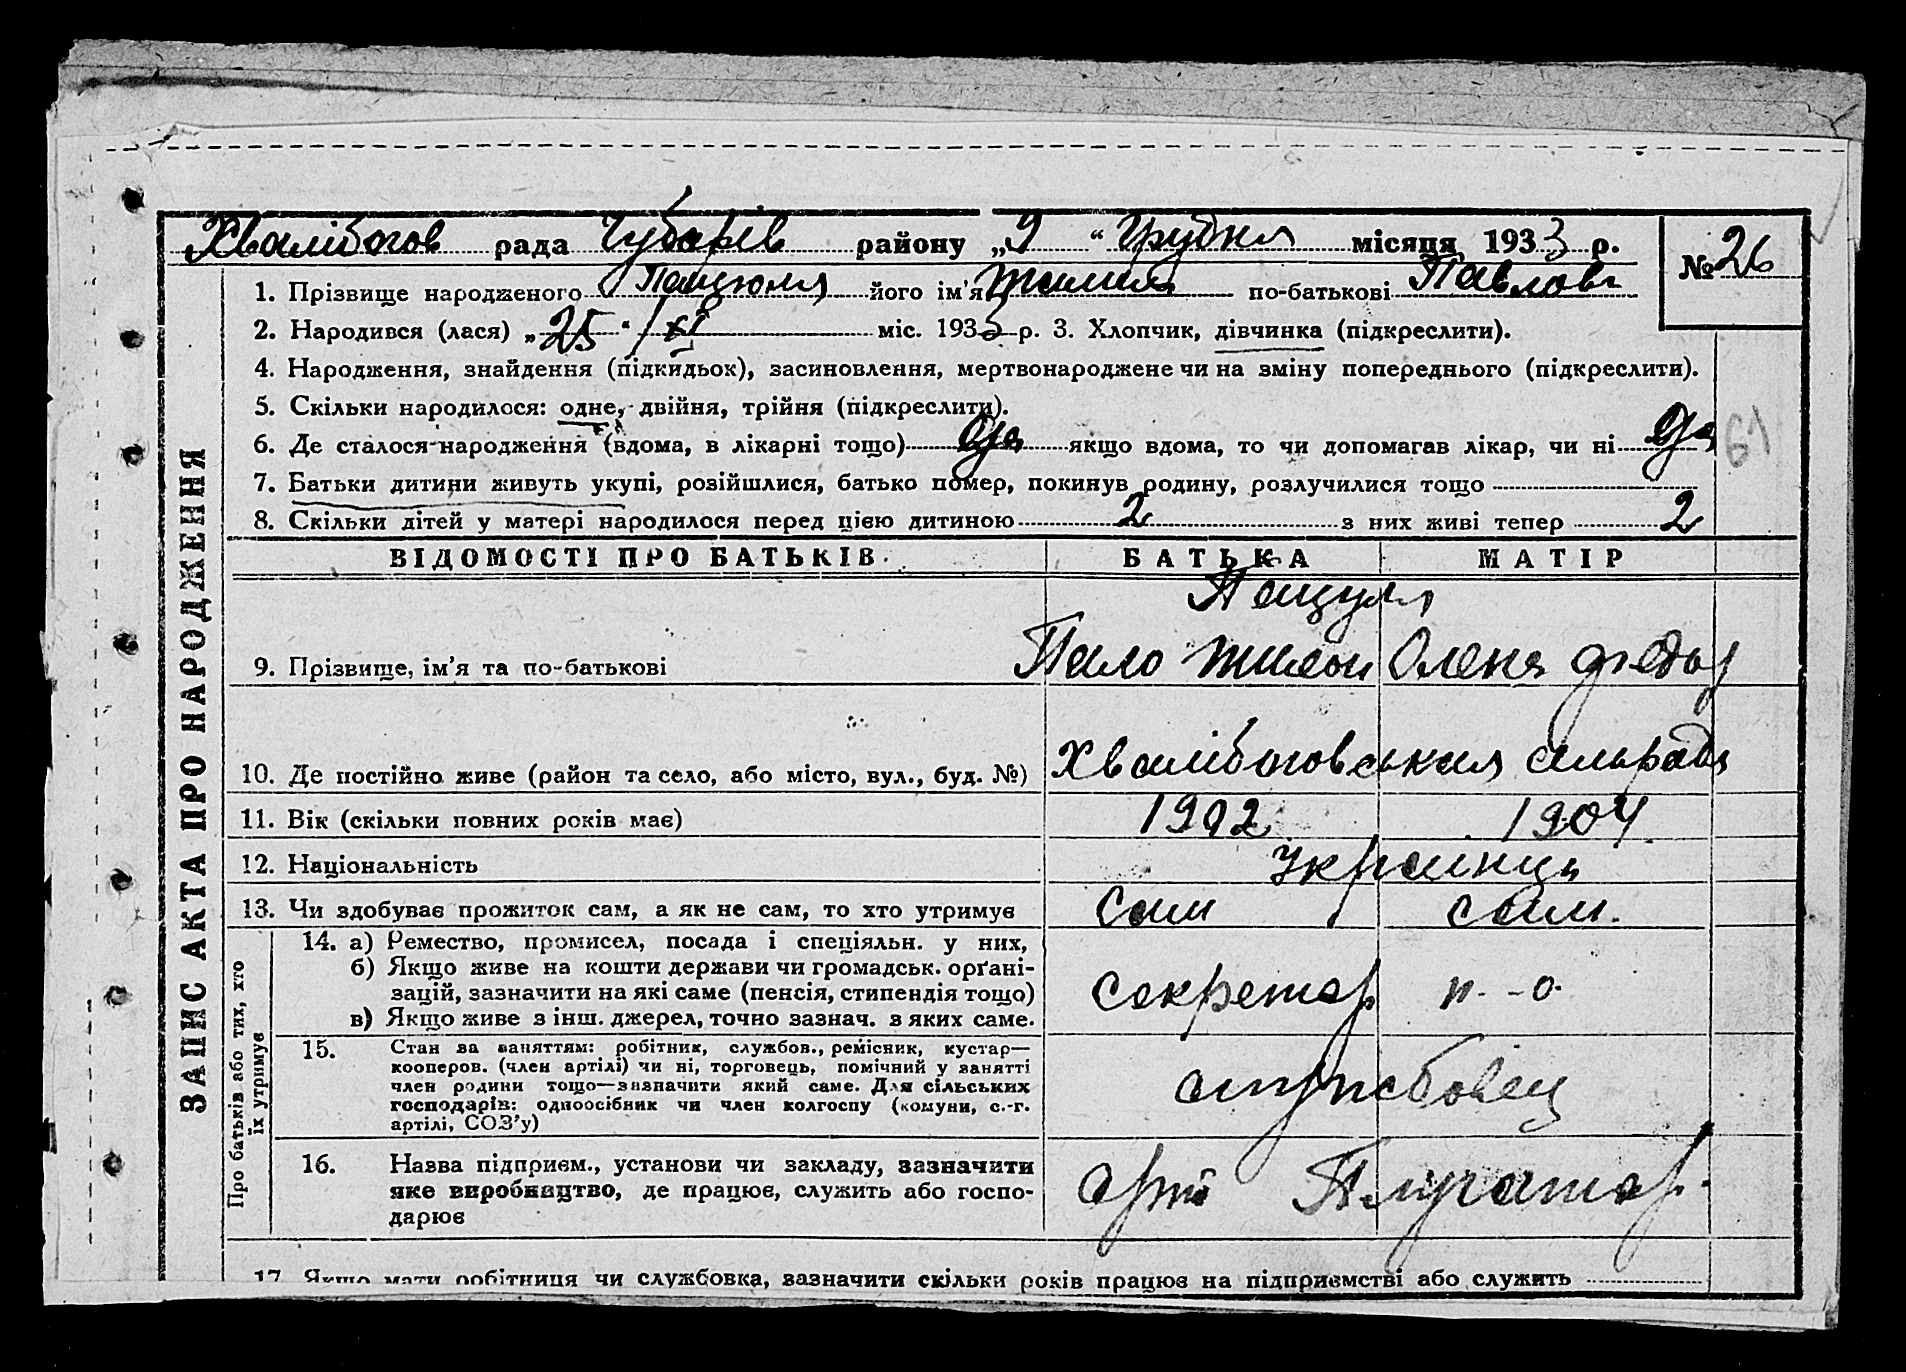 Хвалібогов рада Чубарів району „9“ Грудня місяця 1933 р.
№ 26
1. Прізвище народженого його ім'я по-батькові Павлова
2. Народився (лася) „25“ / XI міс. 1933 р. 3. Хлопчик, дівчинка (підкреслити).
4. Народження, знайдення (підкидьок), засиновлення, мертвонароджене чи на зміну попереднього (підкреслити).
5. Скільки народилося: одне, двійня, трійня (підкреслити).
6. Де сталося народження (вдома, в лікарні тощо) да якщо вдома, то чи допомагав лікар, чи ні да
61
7. Батьки дитини живуть укупі, розійшлися, батько помер, покинув родину, розлучилися тощо
8. Скільки дітей у матері народилося перед цією дитиною 2 з них живі тепер 2
ЗАПИС АКТА ПРО НАРОДЖЕННЯ
ВІДОМОСТІ ПРО БАТЬКІВ БАТЬКА МАТІР
9. Прізвище, ім'я та по-батькові Олена Федор
10. Де постійно живе (район та село, або місто, вул., буд. №) Хвалібоговська сільрада
11. Вік (скільки повних років має) 1902 1904
12. Національність Українць
13. Чи здобуває прожиток сам, а як не сам, то хто утримує сам сам.
Про батьків або тих, хто їх утримує
14. а) Ремество, промисел, посада і спеціяльн. у них,
б) Якщо живе на кошти держави чи громадськ. орґані-
зацій, зазначити на які саме (пенсія, стипендія тощо) секретар н.-о.
в) Якщо живе з інш. джерел, точно зазнач. з яких саме.
15. Стан за заняттям: робітник, службов., ремісник, кустар—
кооперов. (член артілі) чи ні, торговець, помічний у занятті
член родини тощо—зазначити який саме. Для сільських службовец
господарів: одноосібник чи член колгоспу (комуни, с.-г.
артілі, СОЗ'у)
16. Назва підприєм., установи чи закладу, зазначити
яке виробництво, де працює, служить або госпо- арт Плугатар.
дарює
17. Якщо мати робітниця чи службовка, зазначити скільки років працює на підприємстві або служить